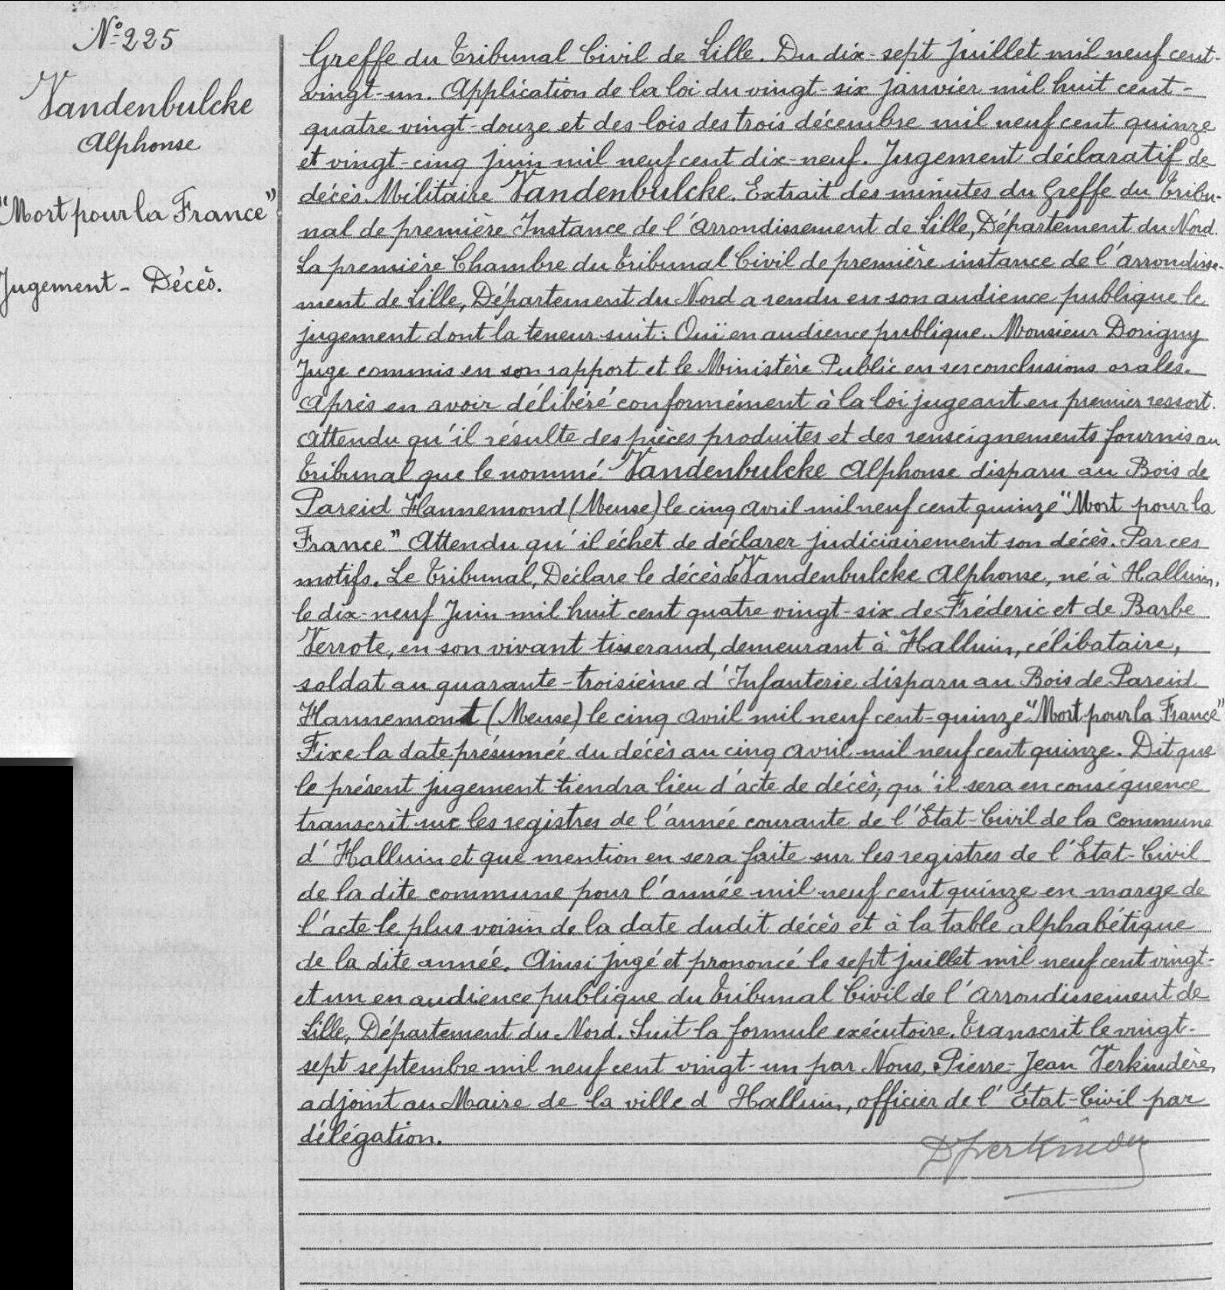 N° 225
Vandenbulcke
Alphonse
"Mort pour la France"
Jugement - Décès.
Greffe du Tribunal Civil de Lille. Du dix-sept juillet mil neuf cent-
vingt-un. Application de la loi du vingt-six janvier mil huit cent-
quatre vingt-douze et des lois des trois décembre mil neuf cent quinze
et vingt-cinq juin mil neuf cent dix-neuf. Jugement déclaratif de
décès. Militaire Vandenbulcke. Extrait des minutes du Greffe du Tribu-
nal de première Instance de l'Arrondissement de Lille, Département du Nord.
La première Chambre du Tribunal Civil de première instance de l'arrondisse-
ment de Lille, Département du Nord a rendu en son audience publique le
jugement dont la teneur suit: Ouï en audience publique Monsieur Dorigny
Juge commis en son rapport et le Ministère Public en ses conclusions orales.
Après en avoir délibéré conformément à la loi jugeant en premier ressort.
Attendu qu'il résulte des pièces produites et des renseignements fournis au
Tribunal que le nommé Vandenbulcke Alphonse disparu au Bois de
Pareid Hannemond (Meuse) le cinq avril mil neuf cent quinze "Mort pour la
France" Attendu qu'il échet de déclarer judiciairement son décès. Par ces
motifs. Le Tribunal, Déclare le décès de Vandenbulcke Alphonse, né à Halluin,
le dix-neuf Juin mil huit cent quatre vingt-six de Fréderic et de Barbe
Verrote, en son vivant tisserand, demeurant à Halluin, célibataire,
soldat au quarante-troisième d'Infanterie disparu au Bois de Pareid
Hannemont (Meuse) le cinq Avril mil neuf cent-quinze "Mort pour la France"
Fixe la date présumée du décès au cinq Avril mil neuf cent quinze. Dit que
le présent jugement tiendra lieu d'acte de décès, qu'il sera en conséquence
transcrit sur les registres de l'année courante de l'Etat-Civil de la Commune
d'Halluin et que mention en sera faite sur les registres de l'Etat-Civil
de la dite commune pour l'année mil neuf cent quinze en marge de
l'acte le plus voisin de la date dudit décès et à la table alphabétique
de la dite année. Ainsi jugé et prononcé le sept juillet mil neuf cent vingt-
et un en audience publique du Tribunal Civil de l'Arrondissement de
Lille, Département du Nord. Suit la formule exécutoire. Transcrit le vingt-
sept septembre mil neuf cent vingt-un par Nous, Pierre-Jean Verkindère,
adjoint au Maire de la ville d'Halluin, officier de l'Etat-Civil par
délégation.